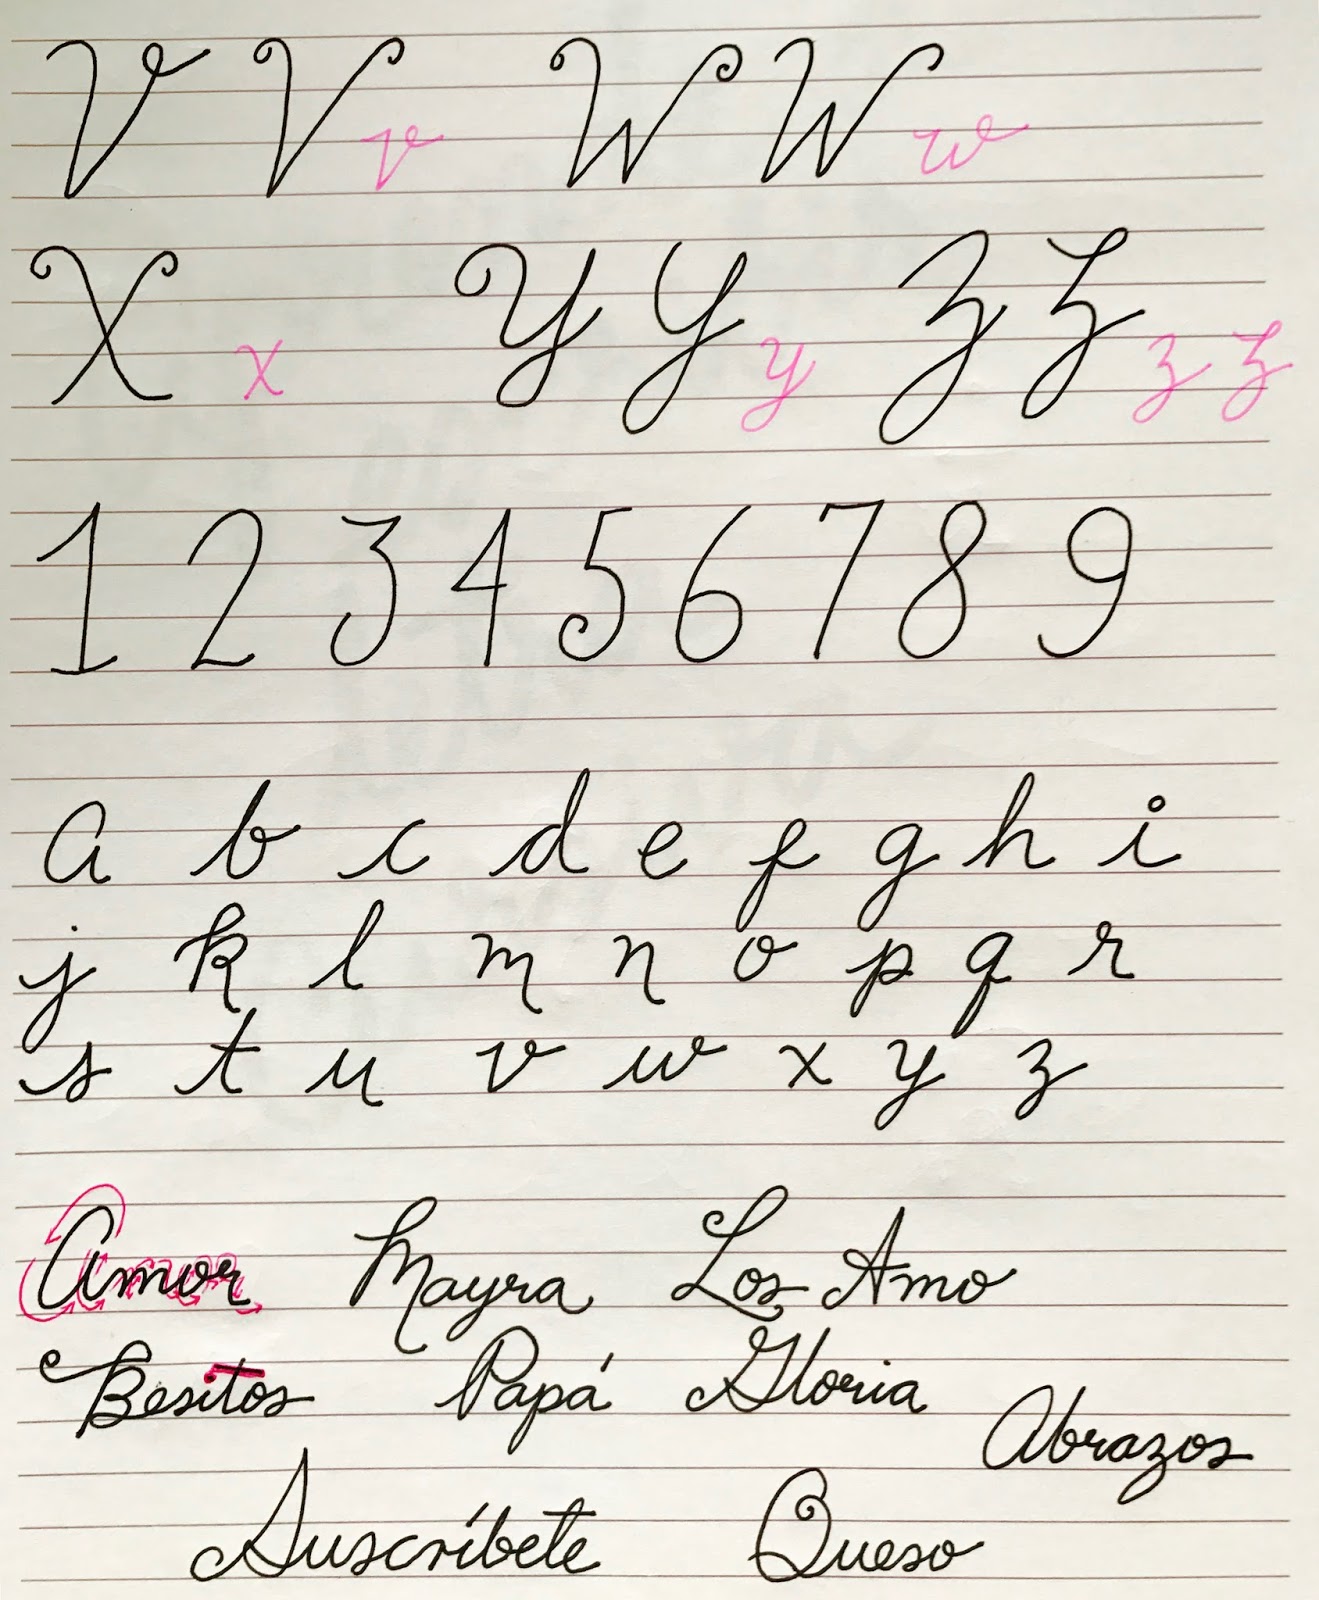 V V v W W w
X x Y Y y Z Z z z
1 2 3 4 5 6 7 8 9
a b c d e f g h i
j k l m n o p q r
s t u v w x y z
Amor Mayra Los Amo
Besitos Papá Gloria
Abrazos
Suscríbete Queso